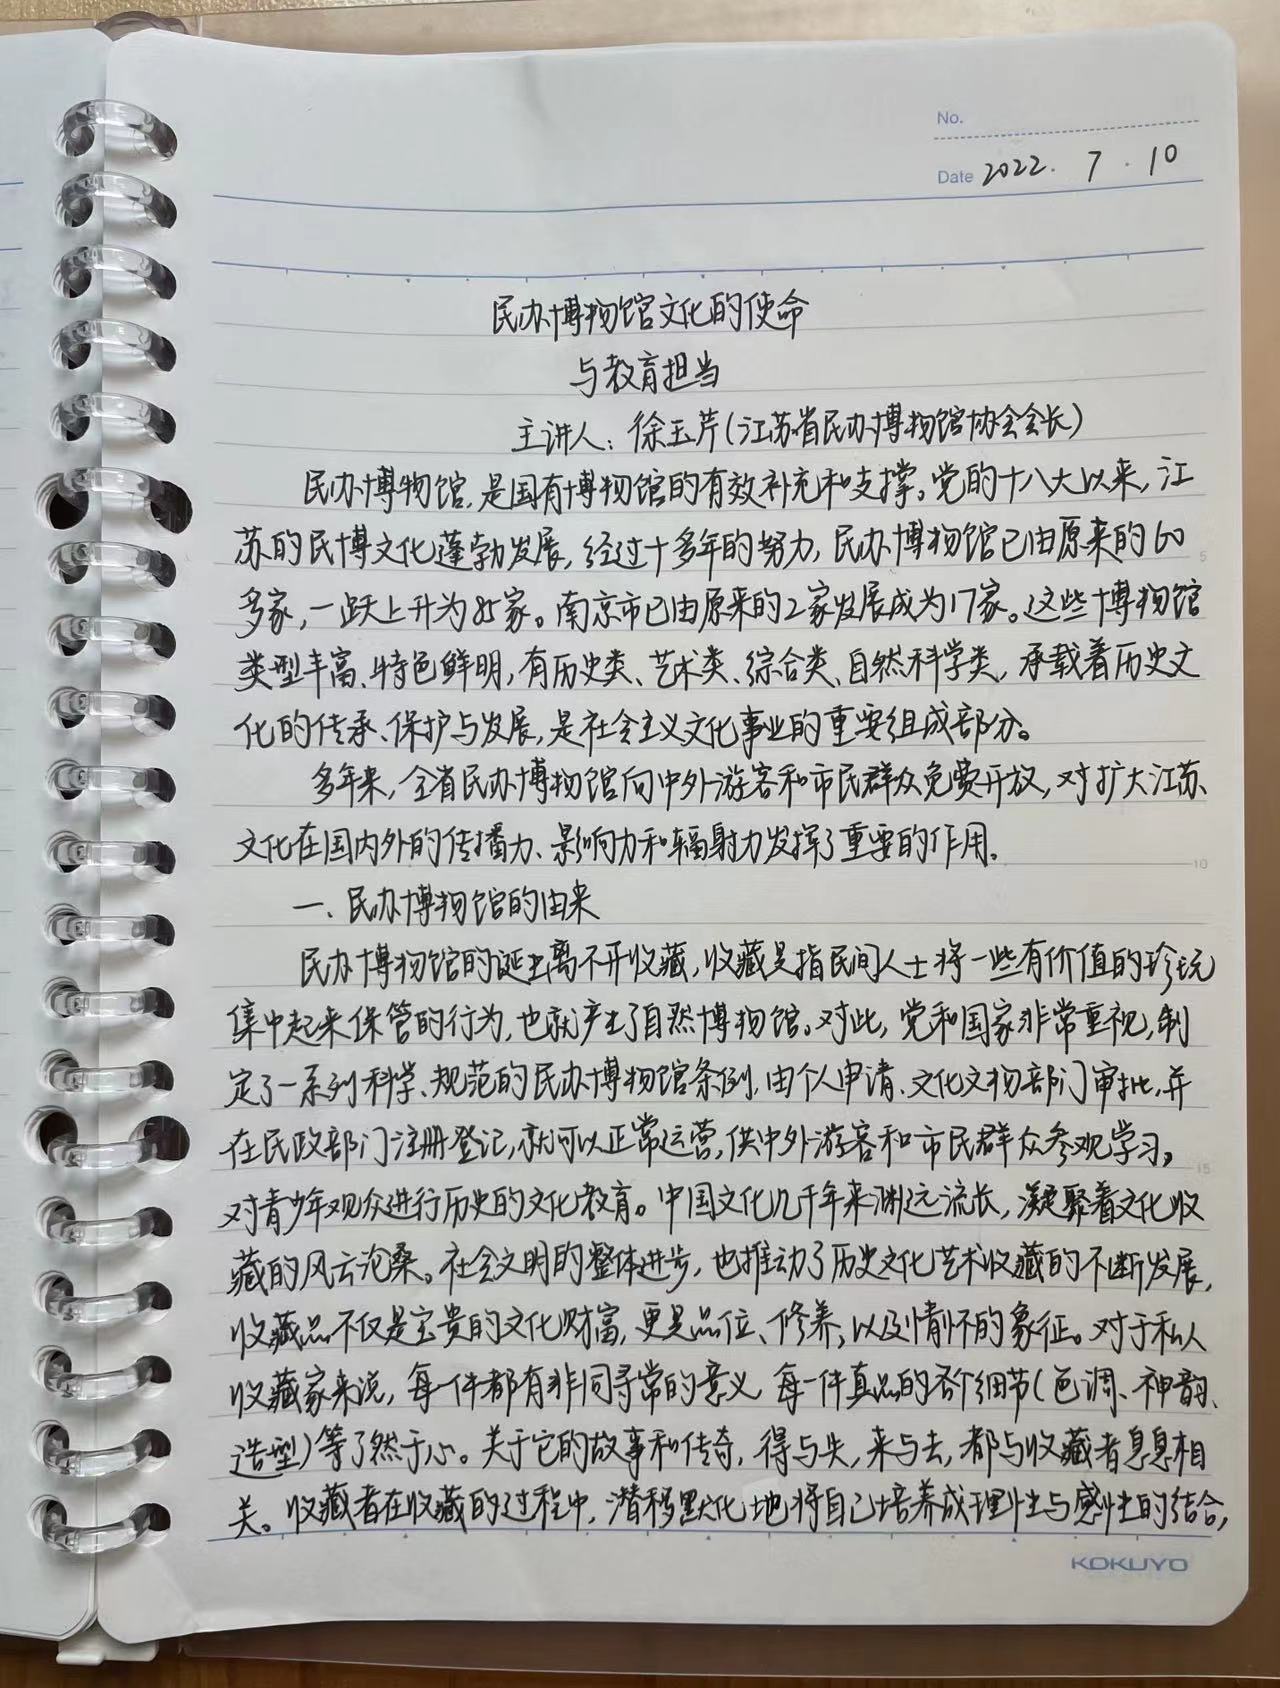 No.
Date 2022. 7. 10
民办博物馆文化的使命
与教育担当
主讲人：徐玉芹(江苏省民办博物馆协会会长)
民办博物馆，是国有博物馆的有效补充和支撑。党的十八大以来，江
苏的民博文化蓬勃发展，经过十多年的努力，民办博物馆已由原来的60
多家，一跃上升为85家。南京市已由原来的2家发展成为17家。这些博物馆
类型丰富、特色鲜明，有历史类、艺术类、综合类、自然科学类，承载着历史文
化的传承、保护与发展，是社会主义文化事业的重要组成部分。
多年来，全省民办博物馆向中外游客和市民群众免费开放，对扩大江苏
文化在国内外的传播力、影响力和辐射力发挥了重要的作用。
5
10
15
一、民办博物馆的由来
民办博物馆的诞生离不开收藏，收藏是指民间人士将一些有价值的珍玩
集中起来保管的行为，也就产生了自然博物馆。对此，党和国家非常重视，制
定了一系列科学、规范的民办博物馆条例，由个人申请、文化文物部门审批，并
在民政部门注册登记，就可以正常运营，供中外游客和市民群众参观学习，
对青少年观众进行历史的文化教育。中国文化几千年来渊远流长，凝聚着文化收
藏的风云沧桑。社会文明的整体进步，也推动了历史文化艺术收藏的不断发展，
收藏品不仅是宝贵的文化财富，更是品位、修养，以及情怀的象征。对于私人
收藏家来说，每一件都有非同寻常的意义，每一件真品的各个细节(色调、神韵、
造型)等了然于心。关于它的故事和传奇，得与失，来与去，都与收藏者息息相
关。收藏者在收藏的过程中，潜移默化地将自己培养成理性与感性的结合，
KOKUYO